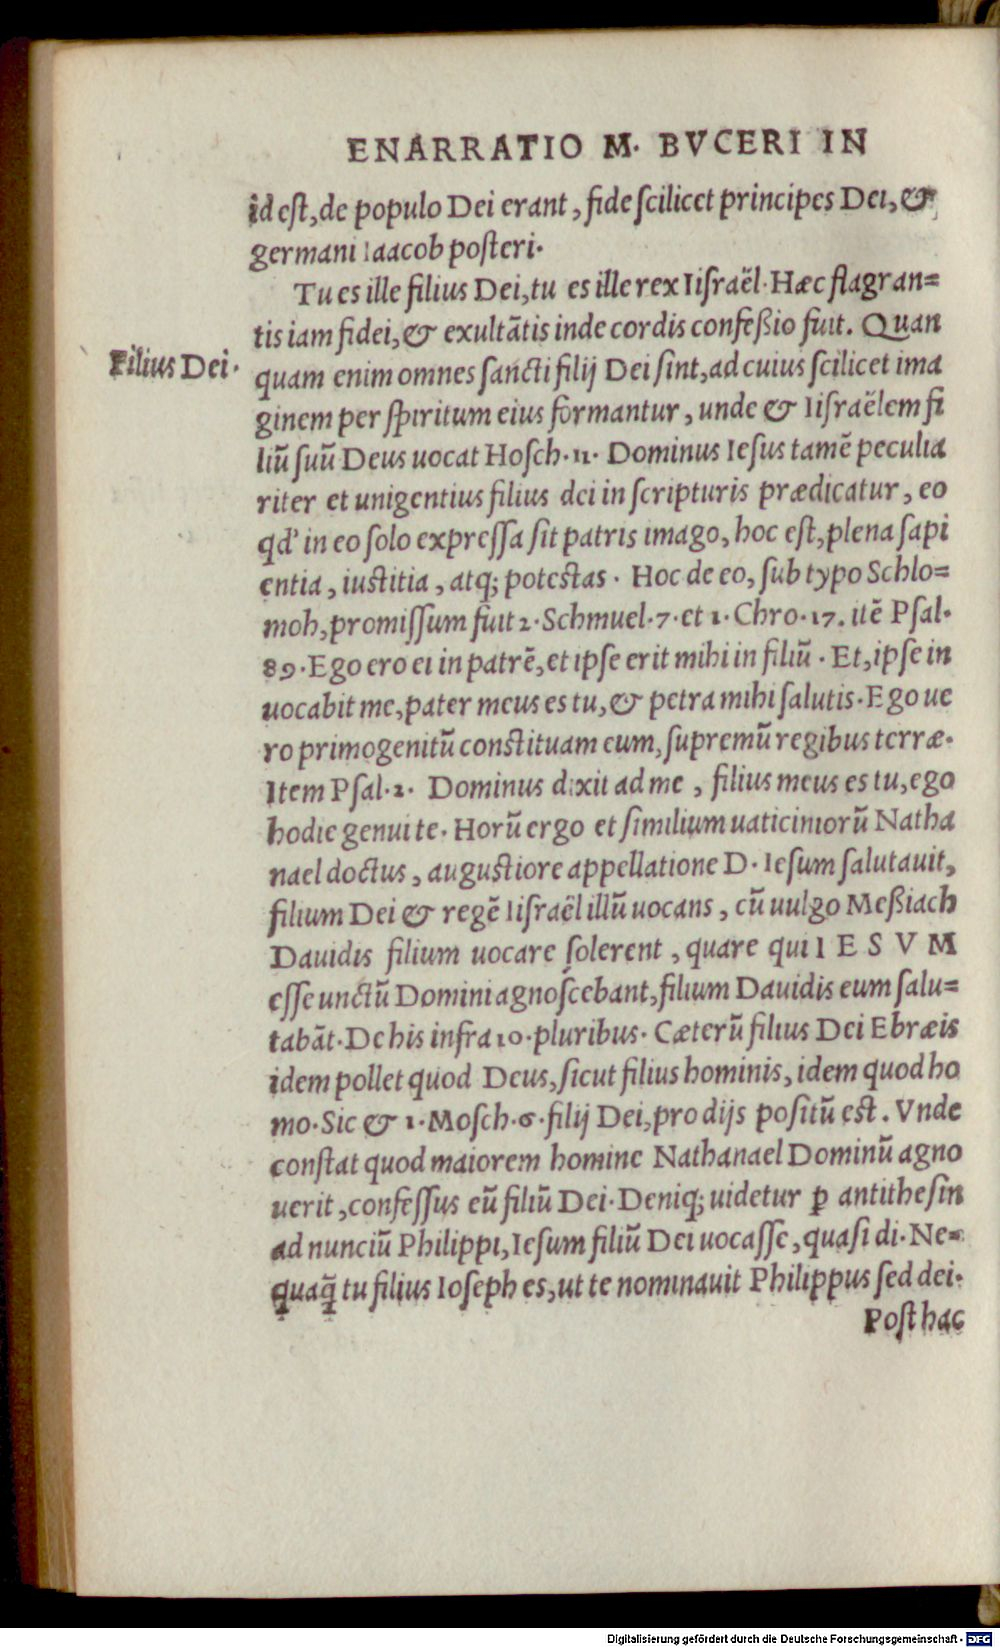 ENARRATIO M. BVCERI IN
id est, de populo Dei erant, fide scilicet principes Dei, &
germani Iaacob posteri.
Tu es ille filius Dei, tu es ille rex Iisraël. Hæc flagran=
tis iam fidei, & exultātis inde cordis confeßio fuit. Quan
Filius Dei.
quam enim omnes sancti filij Dei sint, ad cuius scilicet ima
ginem per spiritum eius formantur, unde & Iisraëlem fi
liū suū Deus uocat Hosch. 11. Dominus Iesus tamē peculia
riter et unigentius filius dei in scripturis prædicatur, eo
qd' in eo solo expressa sit patris imago, hoc est, plena sapi
entia, iustitia, atq; potestas. Hoc de eo, sub typo Schlo=
moh, promissum fuit 2. Schmuel. 7. et 1. Chro. 17. itē Psal.
89. Ego ero ei in patrē, et ipse erit mihi in filiū. Et, ipse in
uocabit me, pater meus es tu, & petra mihi salutis. Ego ue
ro primogenitū constituam eum, supremū regibus terræ.
Item Psal. 2. Dominus dixit ad me, filius meus es tu, ego
hodie genui te. Horū ergo et similium uaticiniorū Natha
nael doctus, augustiore appellatione D. Iesum salutauit,
filium Dei & regē Iisraël illū uocans, cū uulgo Meßiach
Dauidis filium uocare solerent, quare qui I E S V M
esse unctū Domini agnoscebant, filium Dauidis eum salu=
tabāt. De his infra 10. pluribus. Cæterū filius Dei Ebræis
idem pollet quod Deus, sicut filius hominis, idem quod ho
mo. Sic & 1. Mosch. 6. filij Dei, pro dijs positū est. Vnde
constat quod maiorem homine Nathanael Dominū agno
uerit, confessus eū filiū Dei. Deniq; uidetur ꝑ antithesin
ad nunciū Philippi, Iesum filiū Dei uocasse, quasi di. Ne=
quaq̄ tu filius Ioseph es, ut te nominauit Philippus sed dei.
Post hac
Digitalisierung gefördert durch die Deutsche Forschungsgemeinschaft - DFG